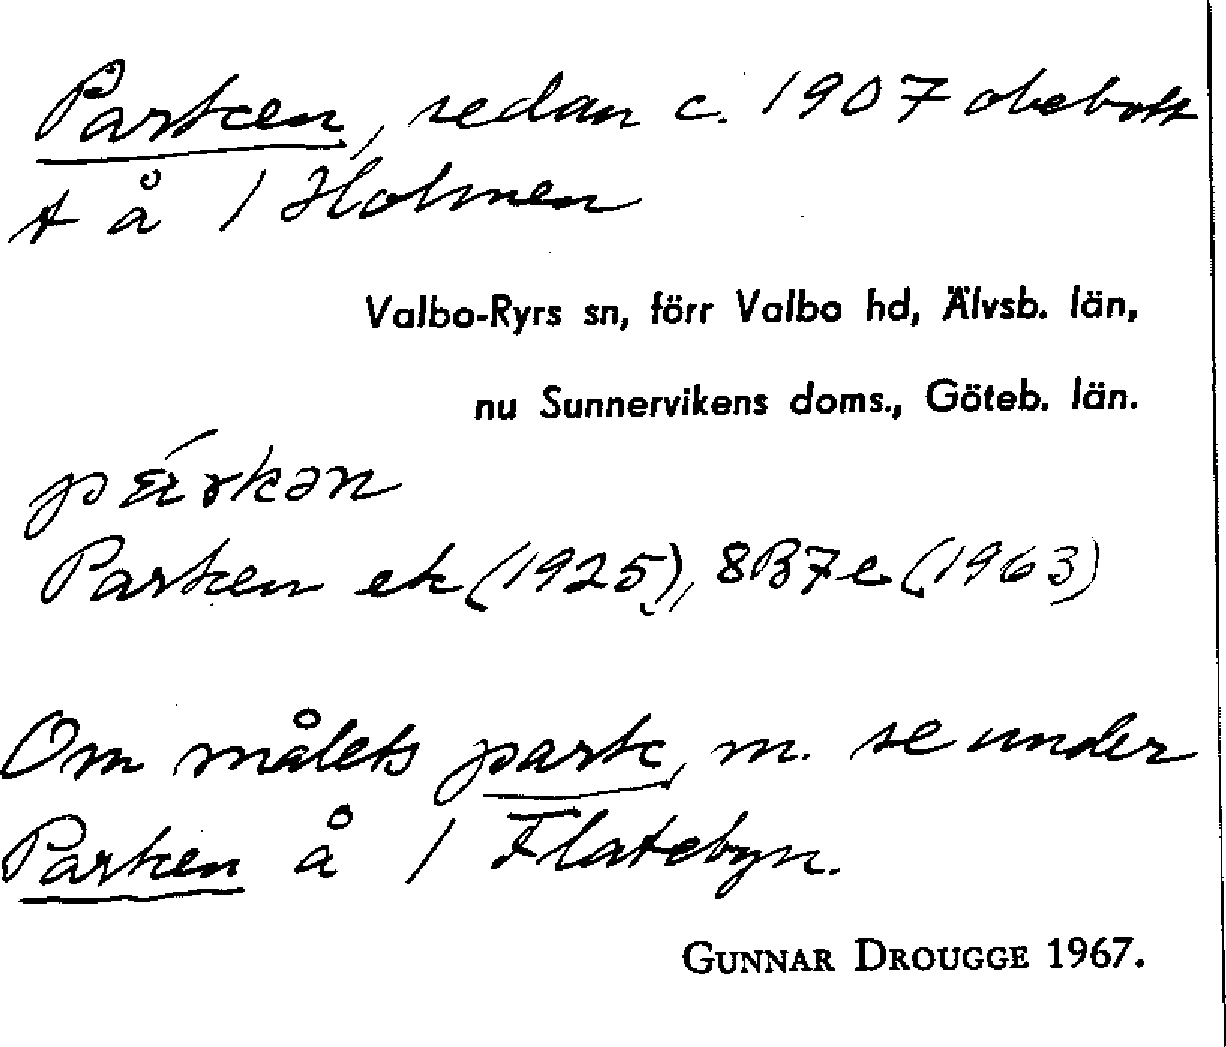 Parken, redan c. 1907 obebott
t å 1 Holmen
Valbo-Ryrs sn, förr Valbo hd, Älvsb. län,
nu Sunnervikens doms., Göteb. län.
Parken ek (1925), 8B7e (1963)
Om målets park, m. se under
Parken å 1 Flatebyn.
GUNNAR DROUGGE 1967.